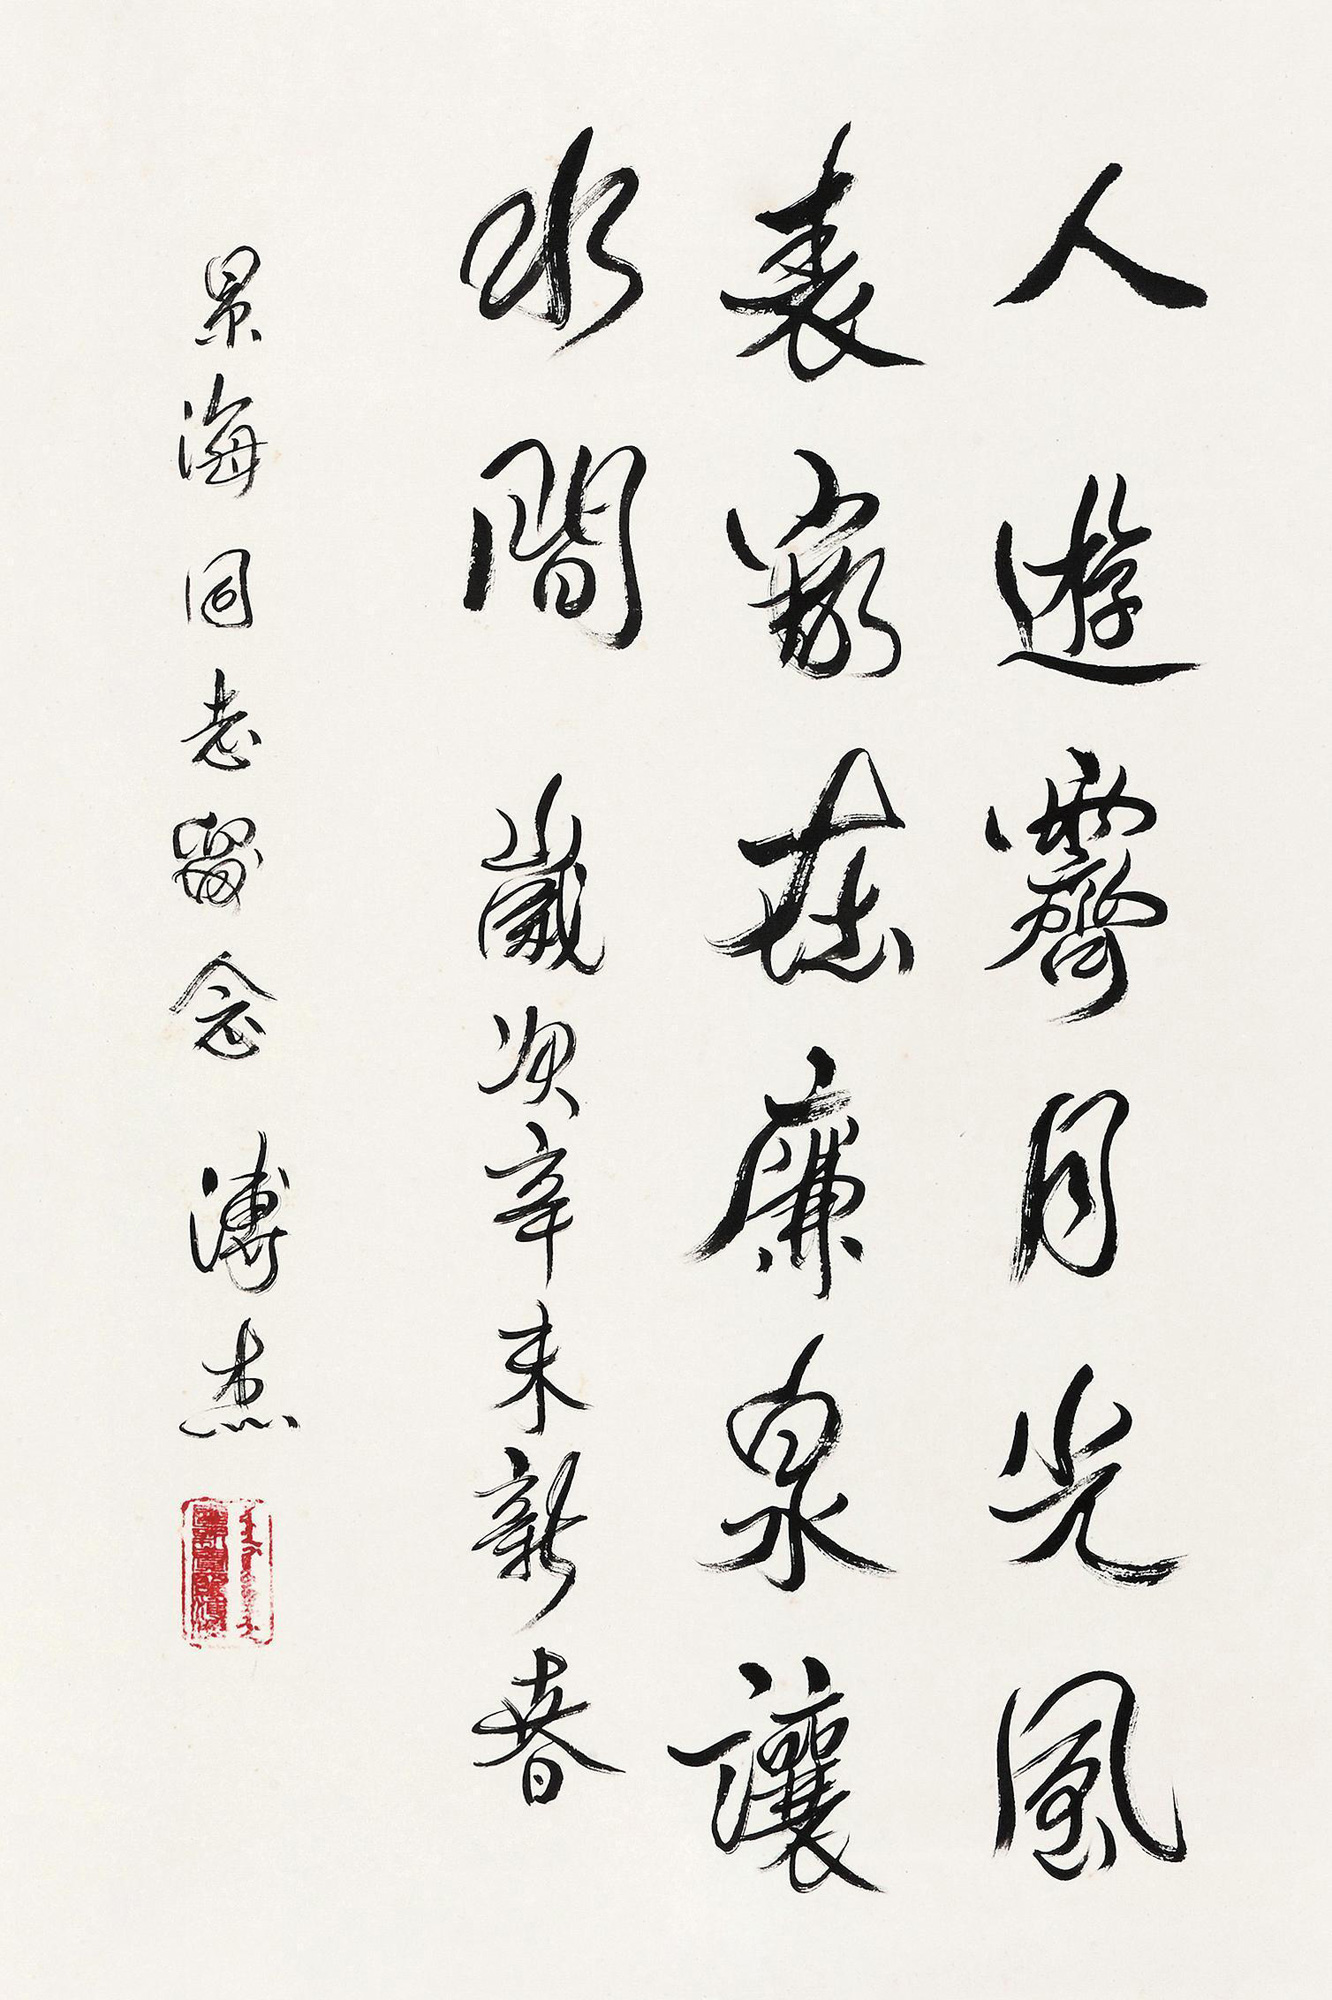 人遊霽月光風
表家在廉泉讓
水間 歲次辛未新春
景海同志留念 溥杰